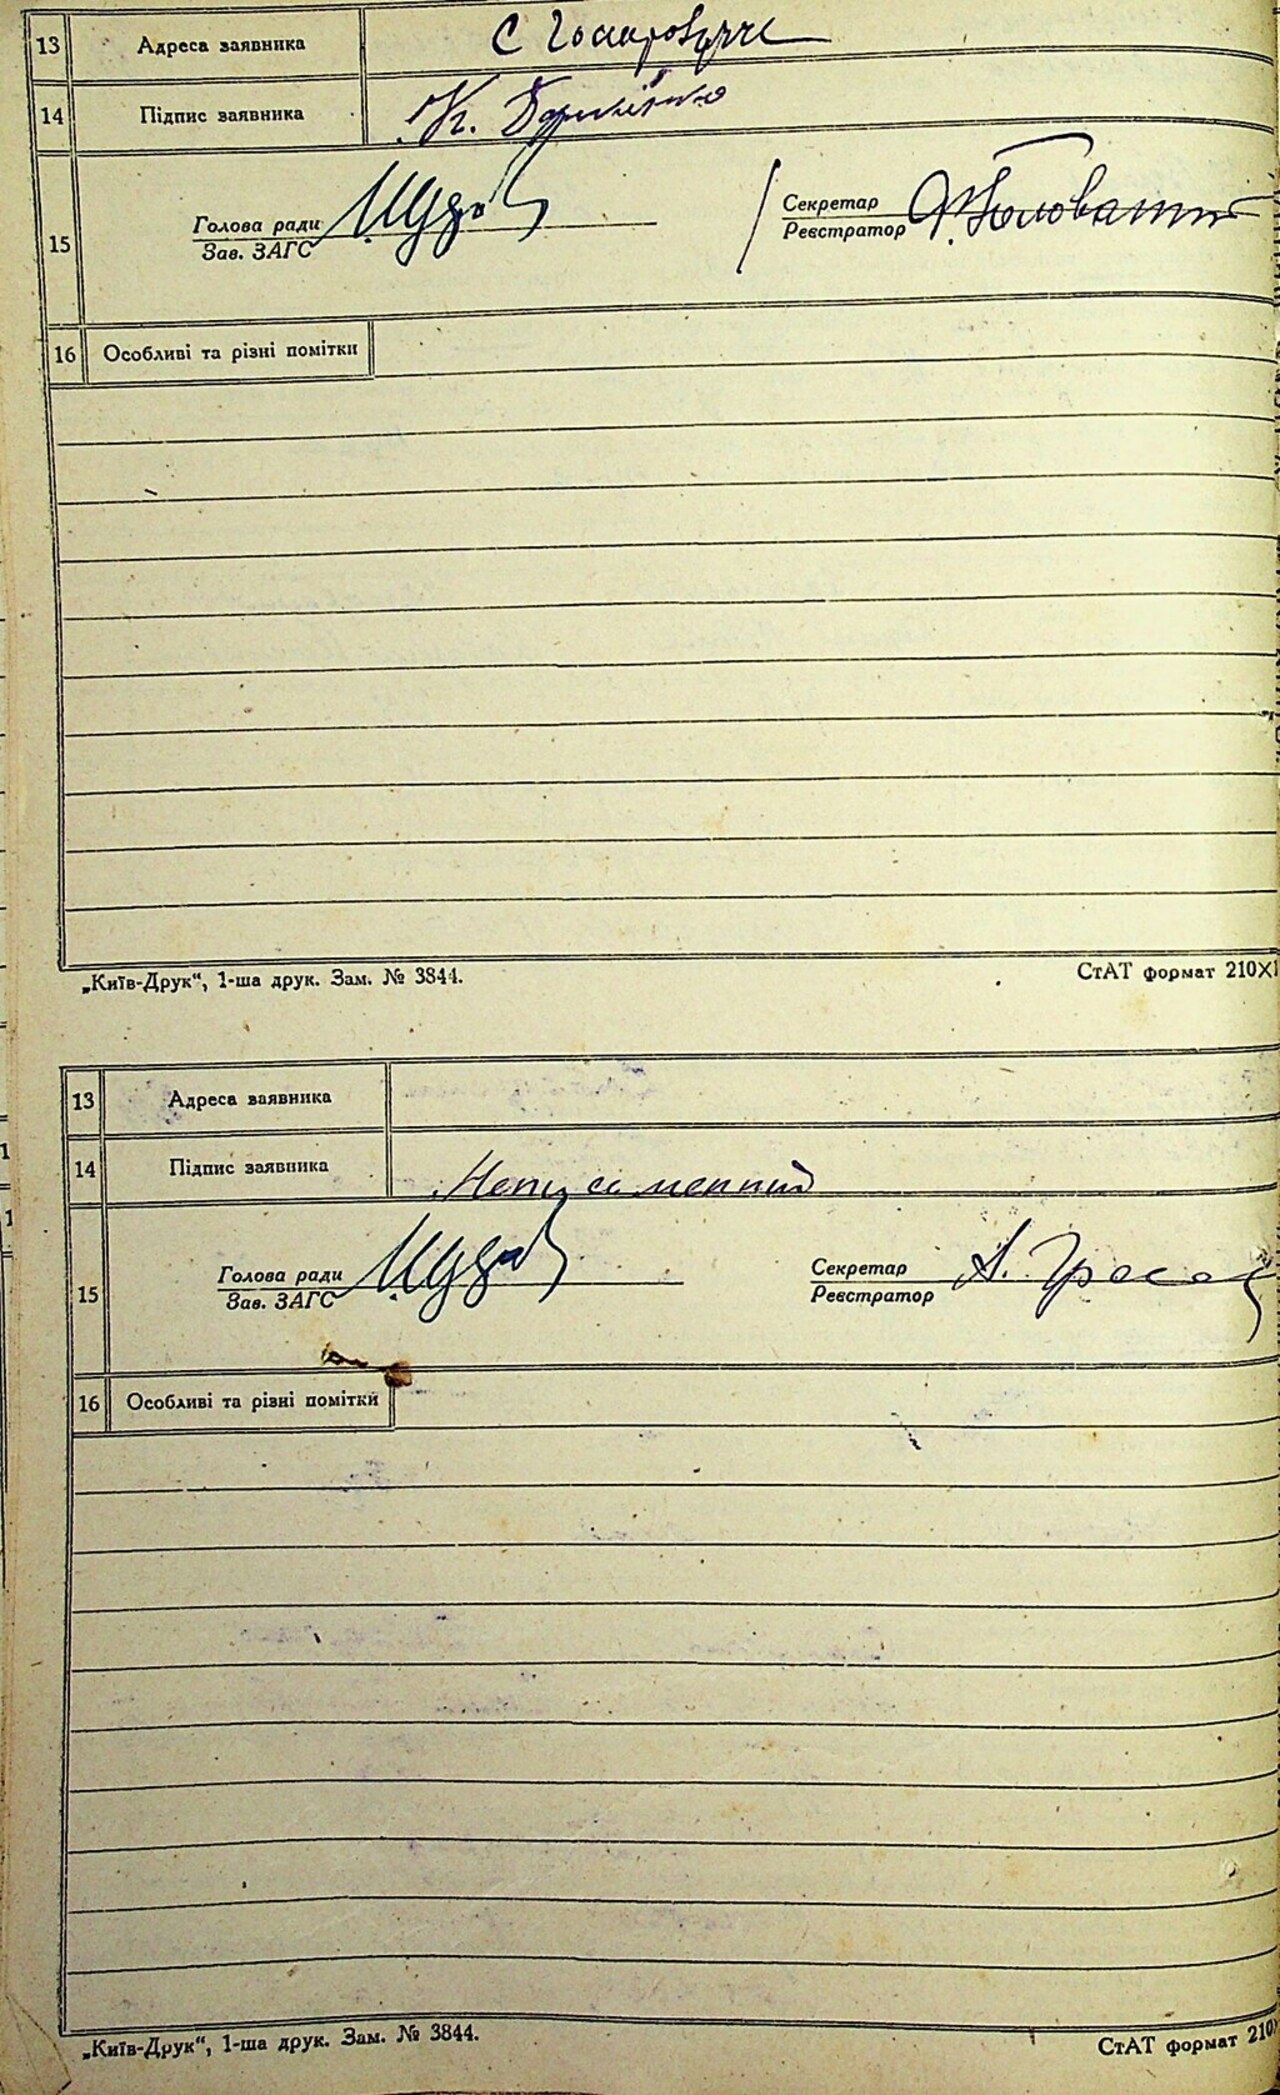 13 Адреса заявника С
14 Підпис заявника К.
15 Голова ради
Зав. ЗАГС
Секретар
Реєстратор
16 Особливі та різні помітки
„Київ-Друк“, 1-ша друк. Зам. № 3844.
СтАТ формат 210X1
13 Адреса заявника
14 Підпис заявника Неписьменний
15 Голова ради
Зав. ЗАГС
Секретар
Реєстратор
16 Особливі та різні помітки
„Київ-Друк“, 1-ша друк. Зам. № 3844.
СтАТ формат 210